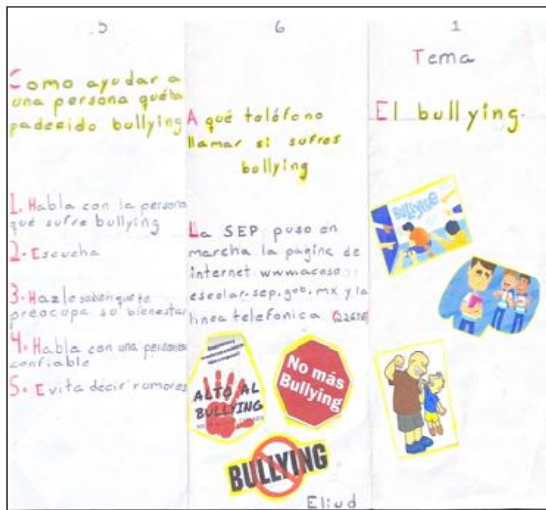 5
Como ayudar a
una persona qué ha
padecido bullying
1. Habla con la persona
qué sufre bullying
2. Escucha
3. Hazle saber que te
preocupa su bienestar
4. Habla con una persona
confiable
5. Evita decir rumores
6
A qué teléfono
llamar si sufres
bullying
La SEP puso en
marcha la pagina de
internet www.acoso
escolar.sep.gob.mx y la
linea telefonica
ALTO AL
BULLYING
No más
Bullying
BULLYING
Eliud
1
Tema
El bullying.
BULLYING